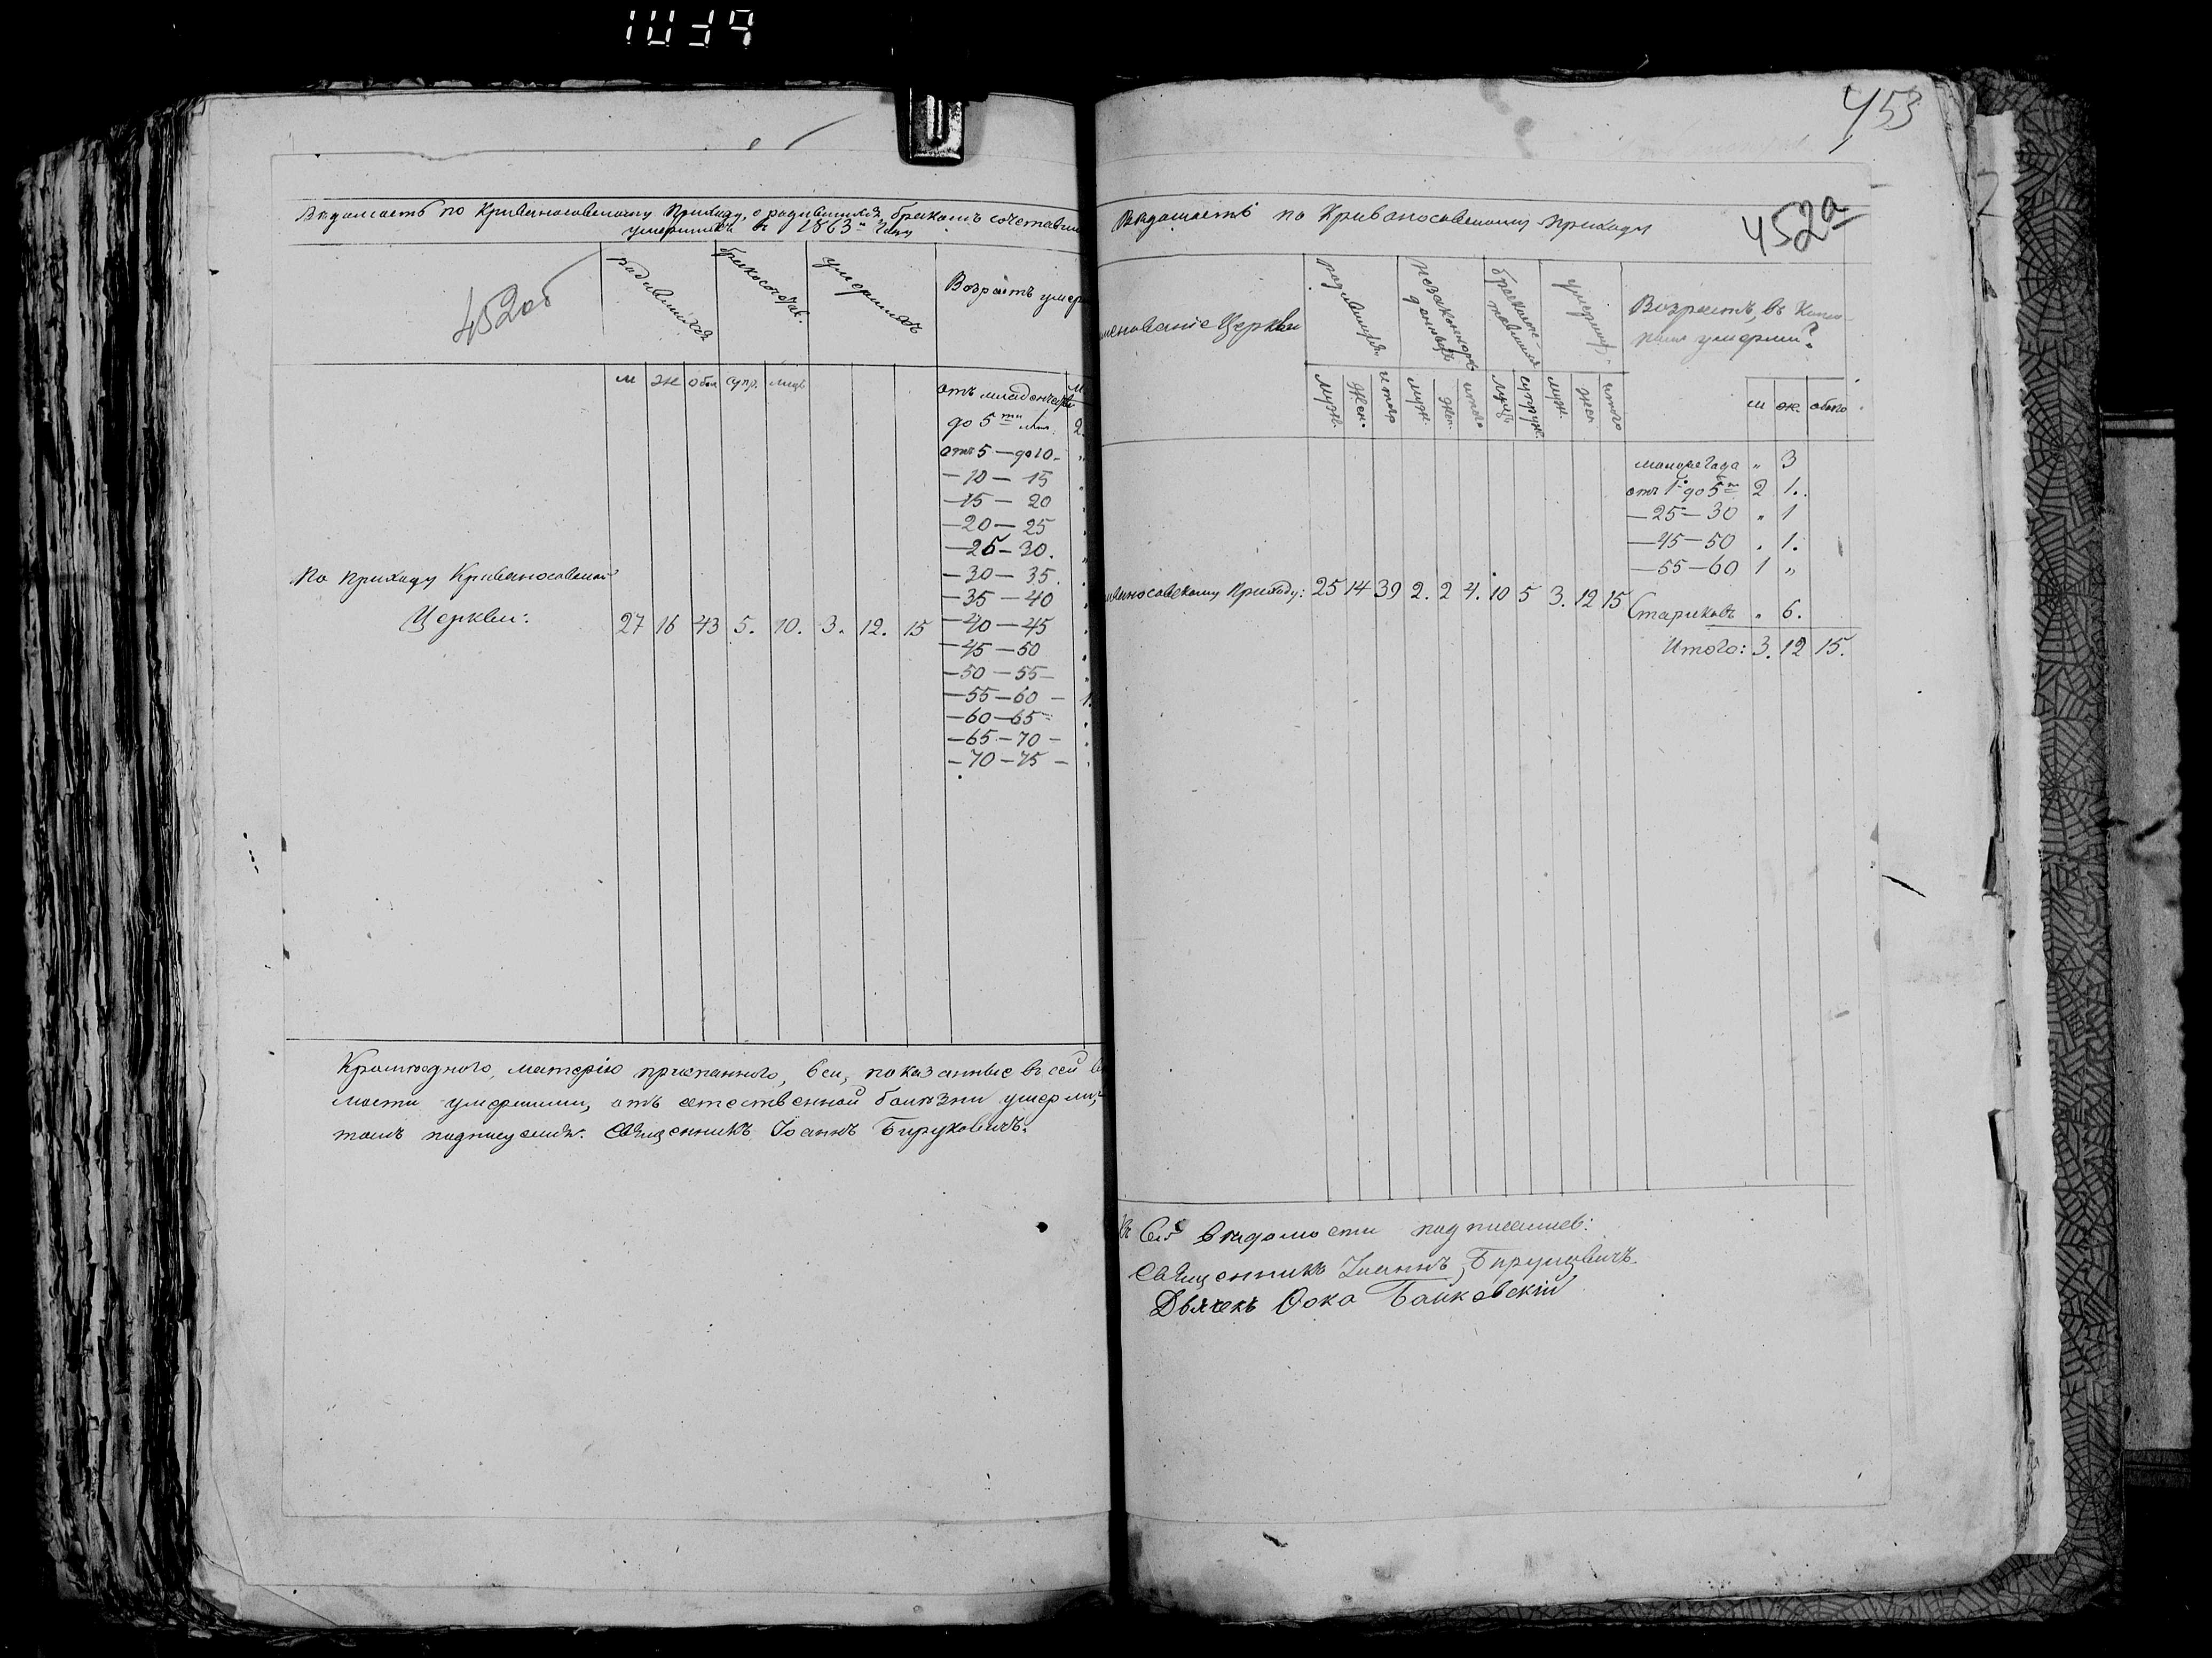 1039
Вѣдомость по Кривоносовскому Приходу, о родившихся, бракомъ сочетавши
умершихъ въ 1863 м году
452об
родившихся
бракосочетав.
умершихъ
Возрастъ умер
м ж обоя супр. лицъ
отъ младенчества м
до 5ти лѣтъ. 2.
отъ 5 — до 10 — "
— 10 — 15
— 15 — 20
— 20 — 25
— 25 — 30.
— 30 — 35.
— 35 — 40
— 40 — 45
— 45 — 50
— 50 — 55 —
— 55 — 60 — 1.
— 60 — 65 —
— 65 — 70 —
— 70 — 75 —
По Приходу Кривоносовской
Церкви: 27 16 43 5. 10. 3. 12. 15
Кромѣ одного, матерію приспанного, вси, показанные въ сей вѣ
мости умершими, отъ естественной болѣзни умерли,
томъ подписуемся. Священникъ Іоаннъ Бируковичъ.
453
452а
Вѣдомость по Кривоносовскому Приходу
менованіе Церкви
родившихся
незаконнорожденныхъ
бракосочетавшихся
умерших.
Возрастъ, въ Кото-
ромъ умерли?
муж. жен. итого муж. жен. итого лицъ супруж. муж. жен итого
м ж. обоего
моложе года " 3
отъ 1го до 5ти 2 1.
— 25 — 30 " 1
— 45 — 50 " 1.
— 55 — 60 1 "
ивоносовскому Приходу: 25 14 39 2. 2 4. 10 5 3. 12 15
Стариковъ " 6.
Итого: 3. 12 15.
Къ Сей вѣдомости подписались:
Священникъ Іоаннъ Бируковичъ.
Дьячекъ Фока Байковскій